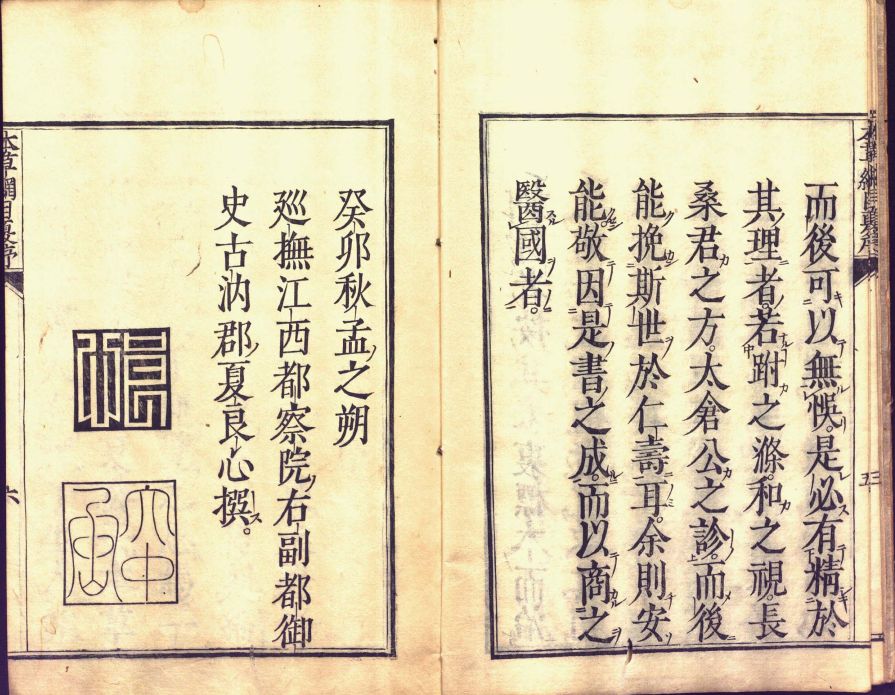 本草綱目夏序
五
而後可以無悞。是必有精於
其理者。若跗之滌。和之視。長
桑君之方。太倉公之診。而後
能挽斯世於仁壽耳。余則安
能敬因是書之成。而以商之
醫國者。
癸卯秋孟之朔
巡撫江西都察院右副都御
史古汭郡夏良心撰。
本草綱目夏序
六